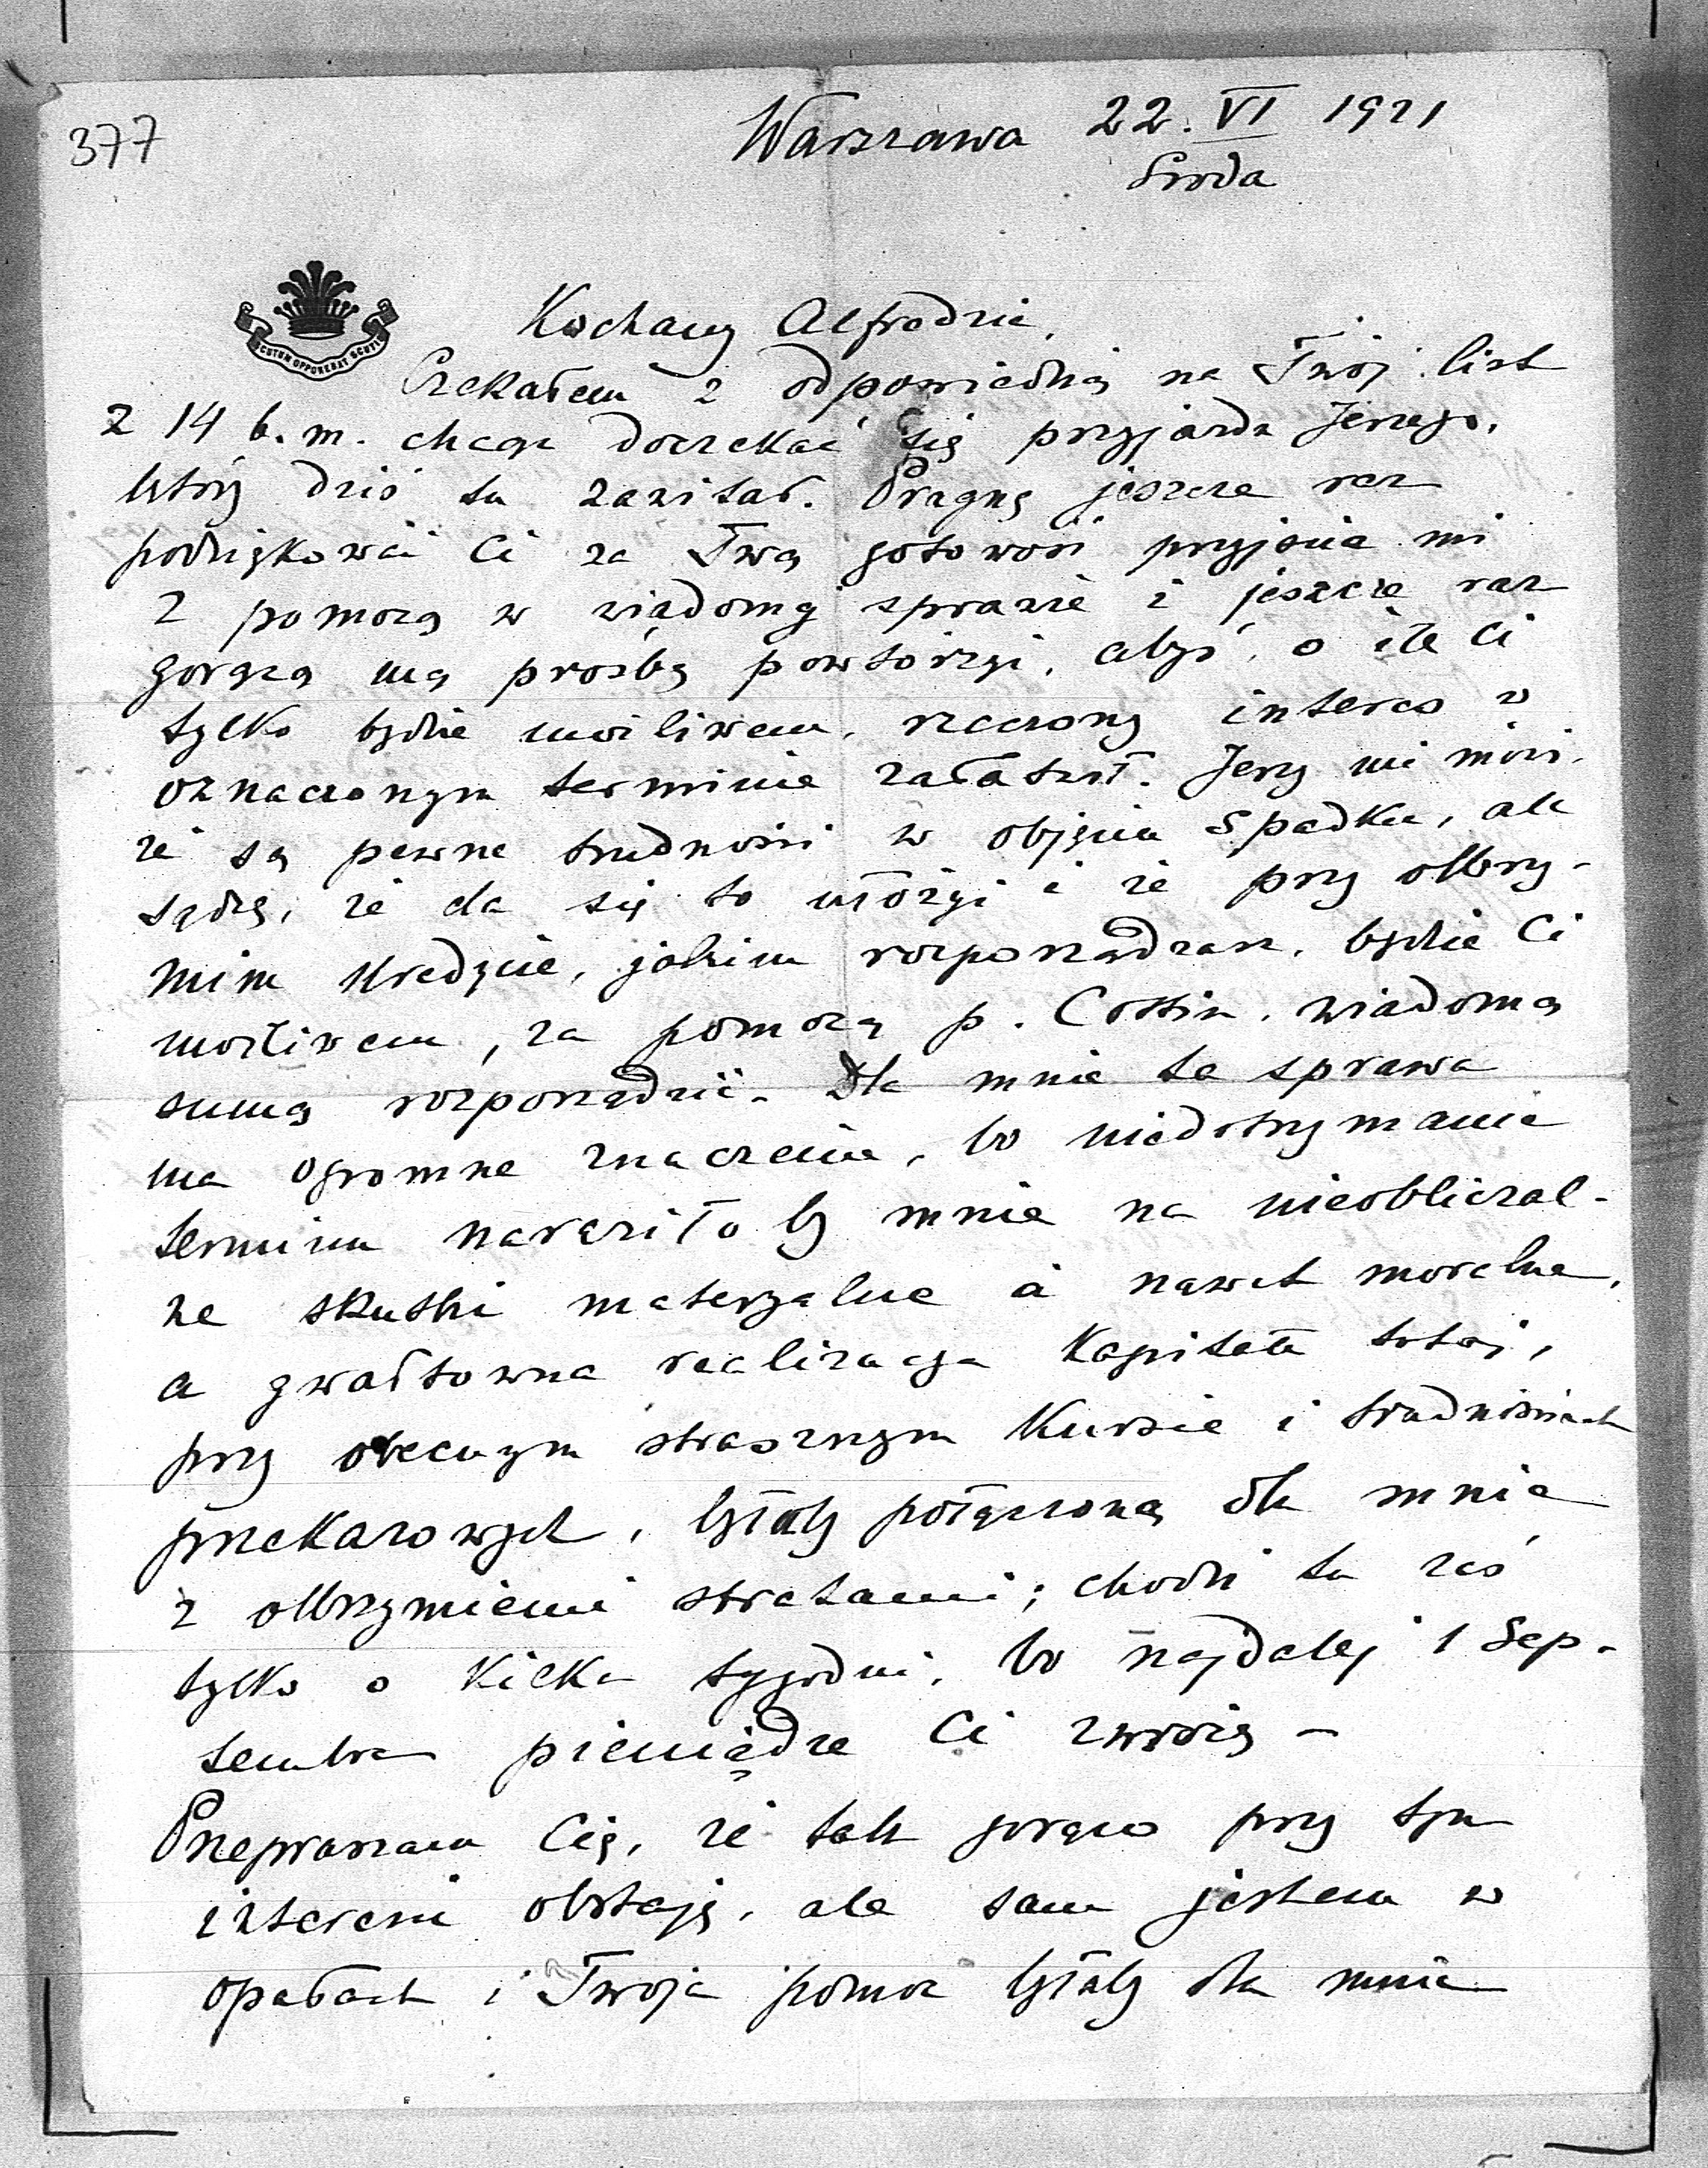 377
Warszawa 22. VI 1921
Środa
SCUTUM OPPONEBAT SCUTIS
Kochany Alfredzie,
Czekałem z odpowiedzią na Twój list
z 14 b.m. chcąc doczekać się przyjazdu Jerzego,
który dziś tu zawitał. Pragnę jeszcze raz
podziękować Ci za Twą gotowość przyjścia mi
z pomocą w wiadomej sprawie i jeszcze raz
gorącą mą prośbę powtórzyć, abyś, o ile Ci
tylko będzie możliwem, rzeczony interes w
oznaczonym terminie załatwił. Jerzy mi mówi,
że są pewne trudności w objęciu spadku, ale
sądzę, że da się to ułożyć i że przy olbrzy-
mim kredycie, jakim rozporządzasz, będzie Ci
możliwem, za pomocą p. wiadomą
sumą rozporządzić. Dla mnie ta sprawa
ma ogromne znaczenie, bo niedotrzymanie
terminu naraziło by mnie na nieobliczal-
ne skutki materyalne a nawet moralne,
a gwałtowna realizacja kapitału tutaj,
przy obecnym strasznym kursie i trudnościach
przekazowych, byłaby połączoną dla mnie
z olbrzymiemi stratami; chodzi tu zaś
tylko o kilka tygodni, bo najdalej 1 Sep-
tembra pieniądze Ci zwrócę –
Przepraszam Cię, że tak gorąco przy tym
interesie obstaję, ale sam jestem w
opałach i Twoja pomoc byłaby dla mnie